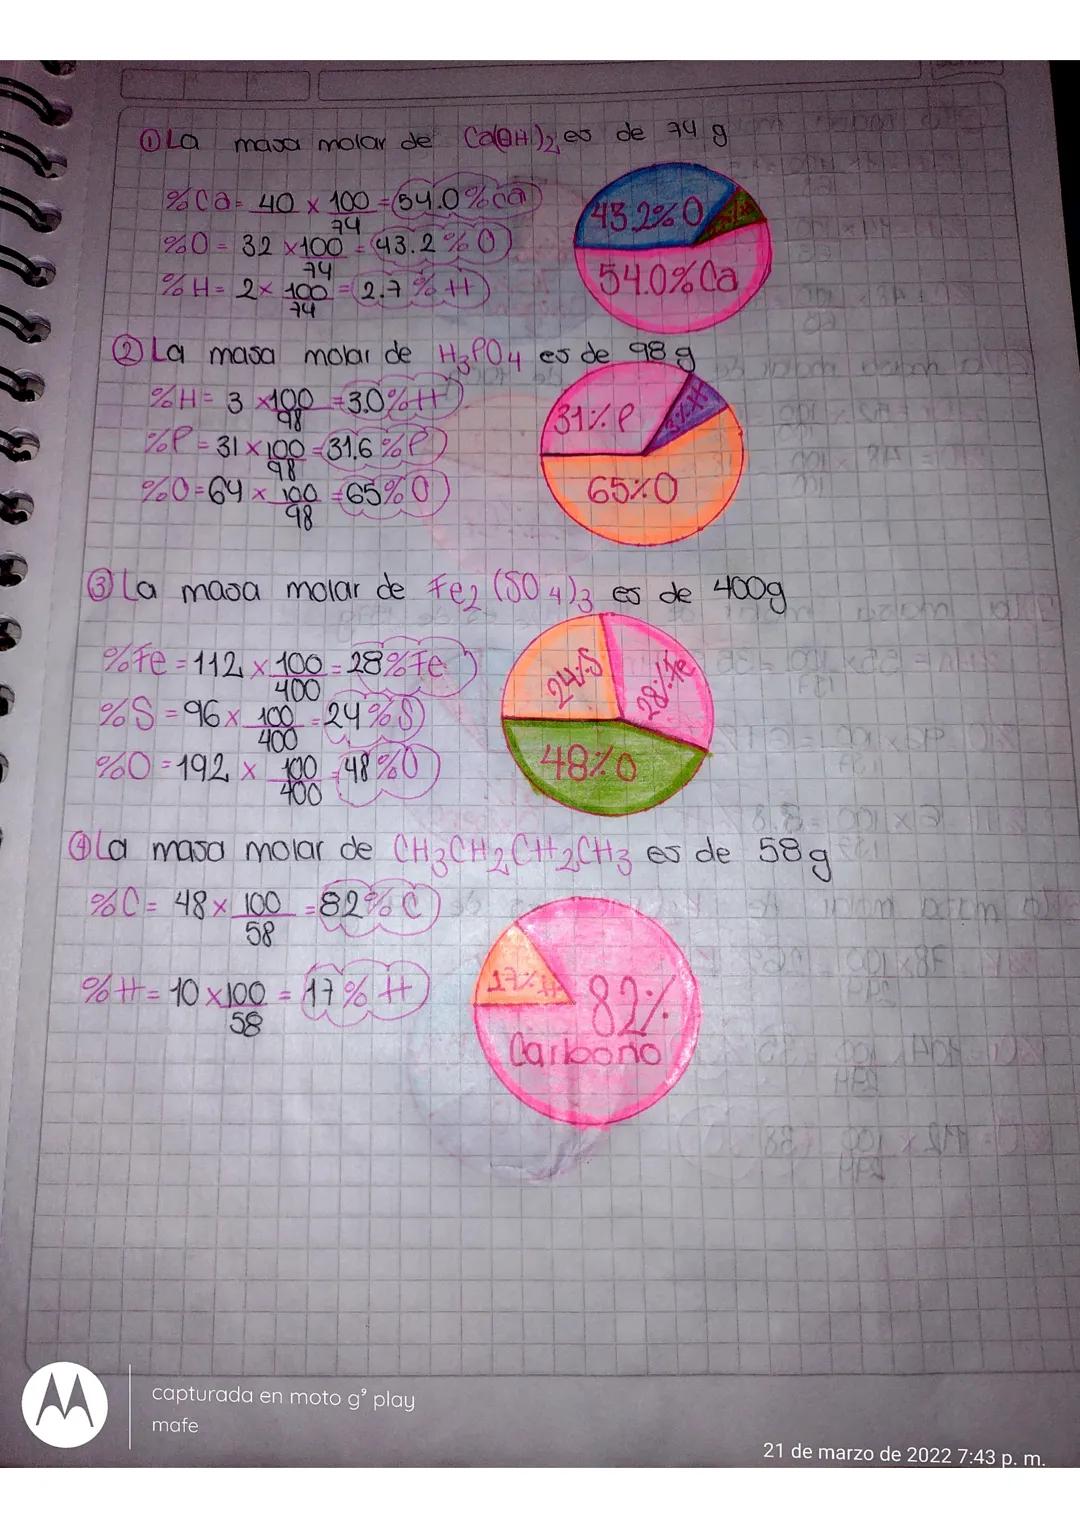 ① La masa molar de Ca(OH)₂ es de 74 g
%Ca= 40 x 100/74 = 54.0% Ca
%O = 32 x 100/74 = 43.2% O
%H = 2 x 100/74 = 2.7% H
43.2% O
54.0% Ca
② La masa molar de H₃PO₄ es de 98 g
%H = 3 x 100/98 = 3.0% H
%P = 31 x 100/98 = 31.6% P
%O = 64 x 100/98 = 65% O
31% P
65% O
③ La masa molar de Fe₂(SO₄)₃ es de 400g
%Fe = 112 x 100/400 = 28% Fe
%S = 96 x 100/400 = 24% S
%O = 192 x 100/400 = 48% O
24% S
28% Fe
48% O
④ La masa molar de CH₃CH₂CH₂CH₃ es de 58 g
%C = 48 x 100/58 = 82% C
%H = 10 x 100/58 = 17% H
17% H
82%
Carbono
capturada en moto g⁹ play
mafe
21 de marzo de 2022 7:43 p. m.